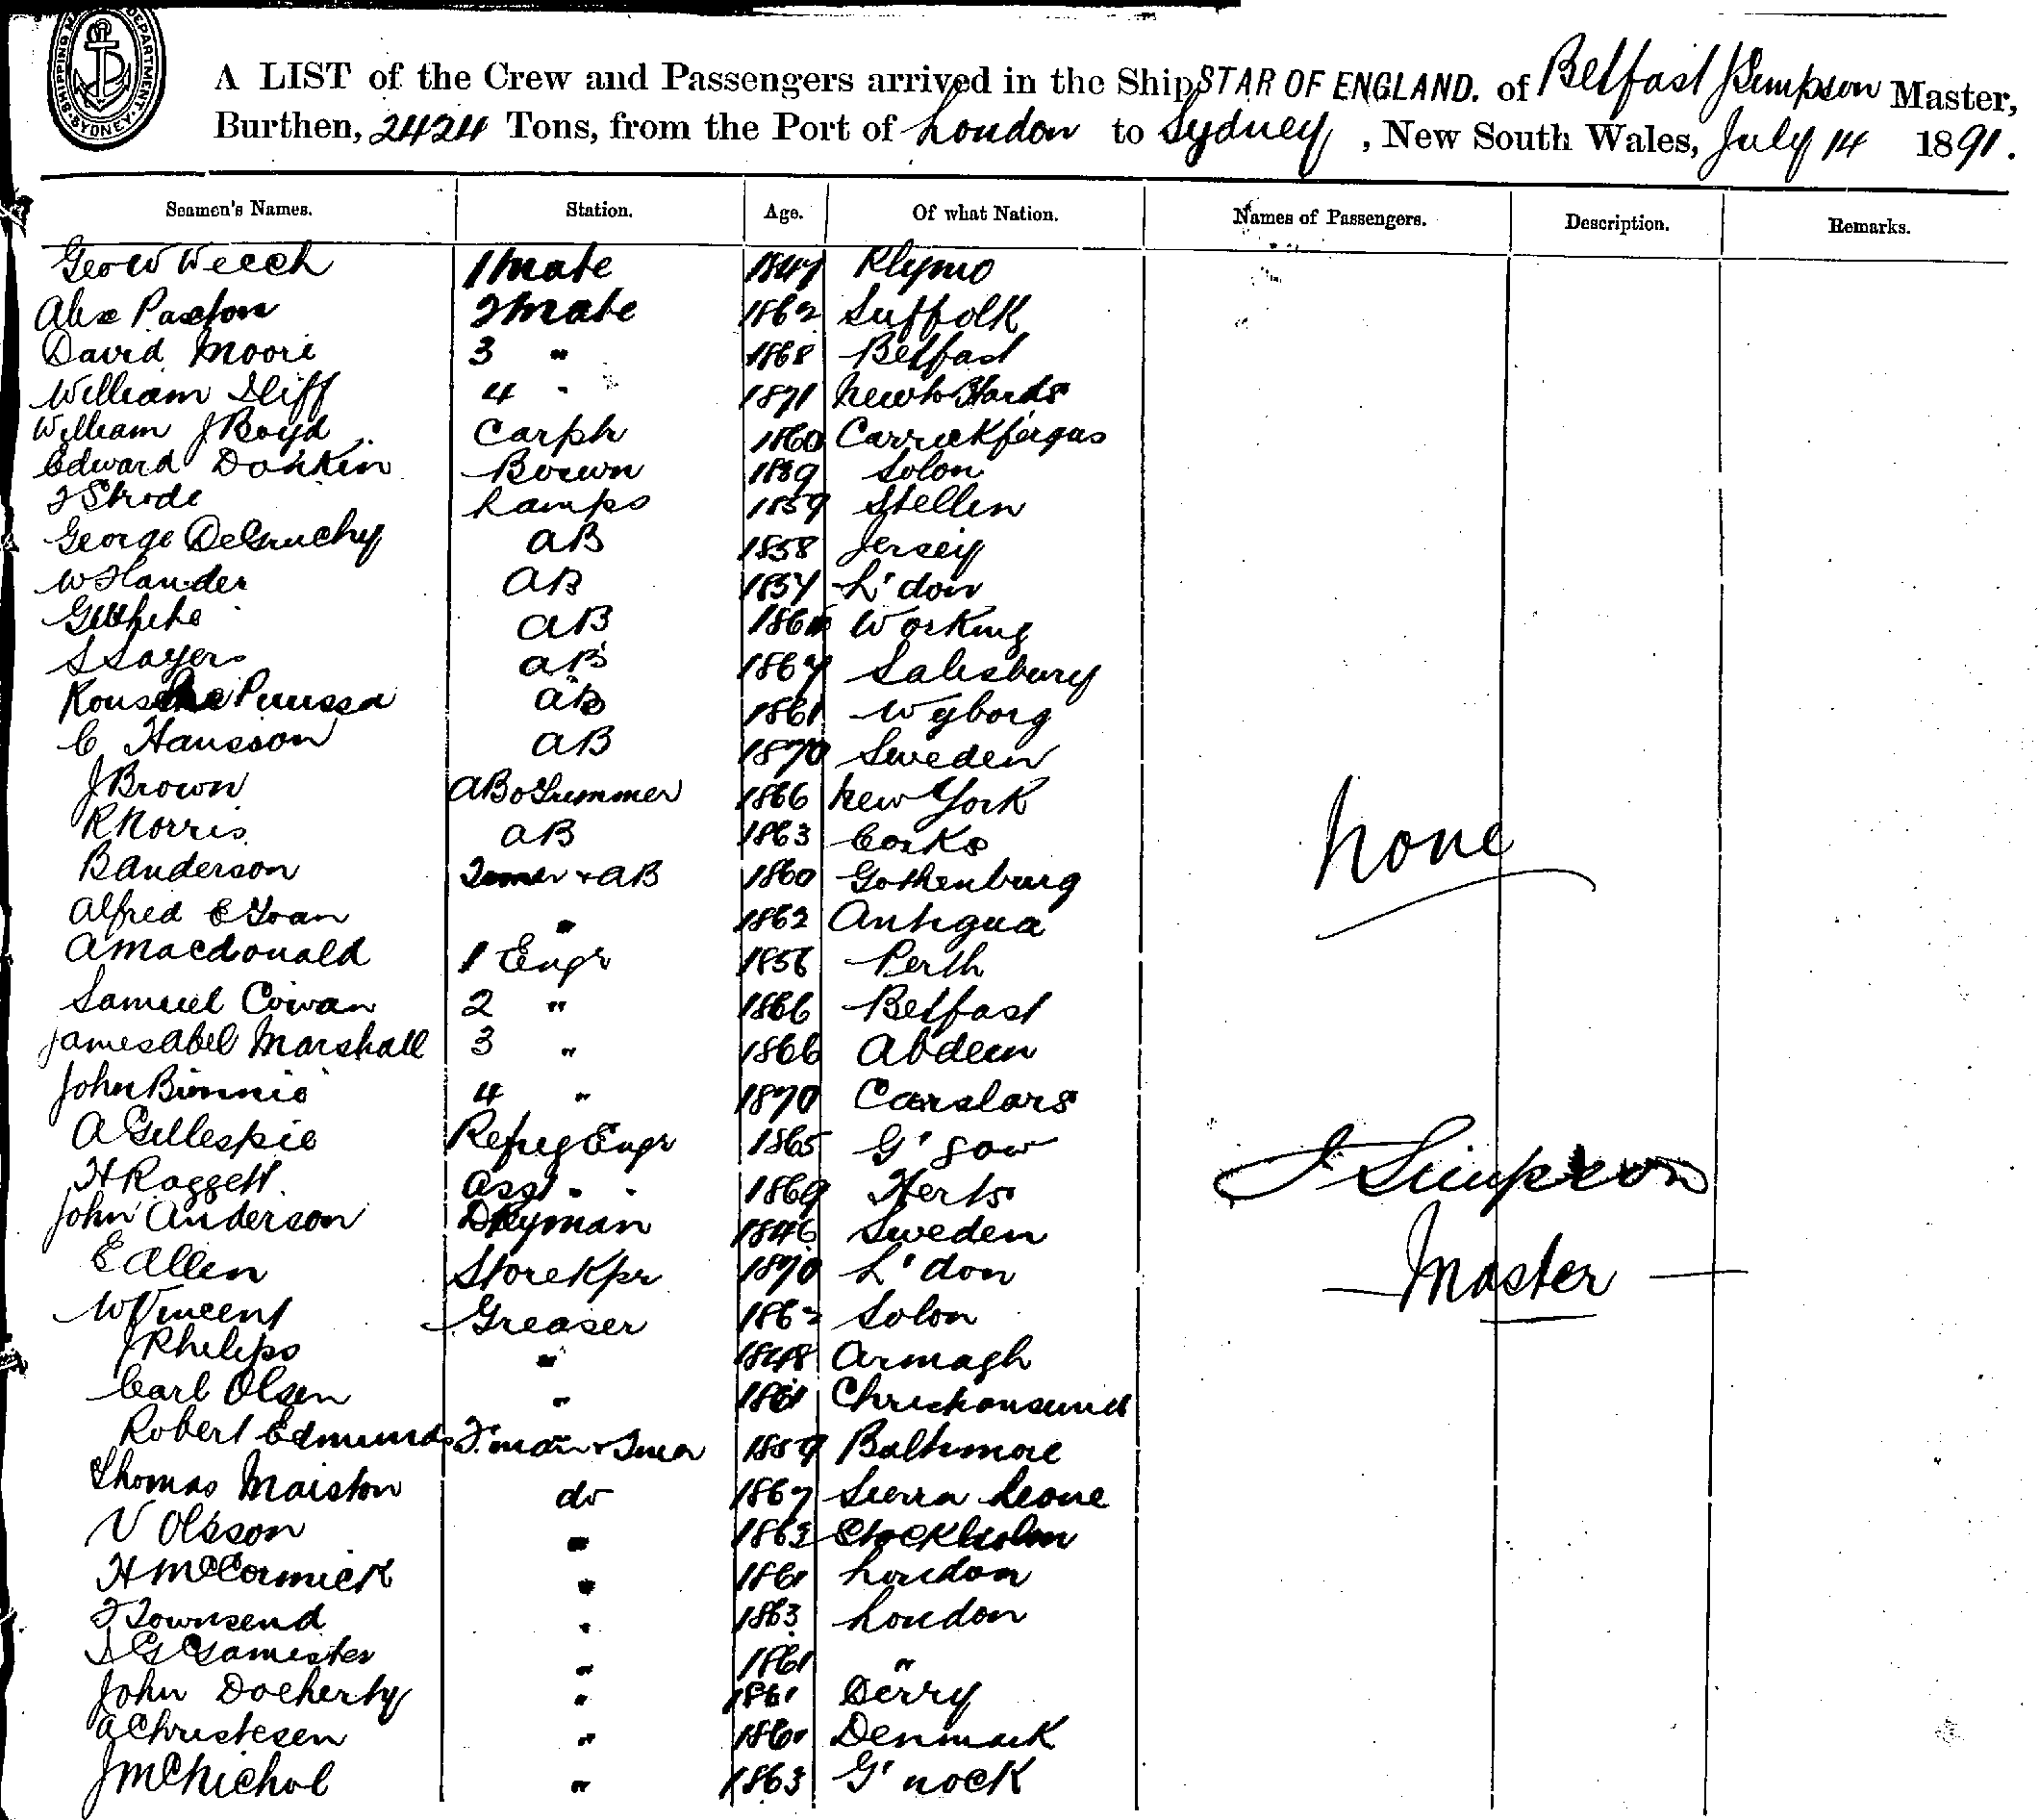 SHIPPING MA DEPARTMENT SYDNEY
A LIST of the Crew and Passengers arrived in the Ship STAR OF ENGLAND. of Belfast J Simpson Master,
Burthen, 2424 Tons, from the Port of London to Sydney, New South Wales, July 14 1891.
Seamen's Names. Station. Age. Of what Nation. Names of Passengers. Description. Remarks.
Geo W Veech 1 Mate 1847 Plymo
Alex Paxton 2 Mate 1862 Suffolk
David Moore 3 " 1868 Belfast
William Iliff 4 " 1871
William J Boyd Carptr 1860 Carrickfergus
Edward Donkin Boswn 1839 Solon
Strode Lamps 1859 Stettin
George DeGruchy AB 1858 Jersey
AB 1857 L'don
G White AB Working
S Sayers AB 1867 Salisbury
AB 1861 Wyborg
C Hansson AB 1870 Sweden
J Brown AB & Trimmer 1866 New York
R Norris AB 1863 Corke
B Anderson + AB 1860 Gothenburg
Alfred " 1862 Antigua
A Macdonald 1 Engr 1856 Perth
Samuel Cowan 2 " 1866 Belfast
James Abel Marshall 3 " 1866 Abdeen
John Binnie 4 " 1870
A Gillespie Refrig Engr 1865 G'gow
H Raggett Asst " " 1869 Herts
John Anderson Dkyman 1846 Sweden
E Allen Storekpr 1870 L'don
W Vincent Greaser 1862 Solon
J Philips " 1848 Armagh
Carl Olsen " 1861 Christiansund
Robert Edmunds F.man + 1859 Baltimore
Thomas Maiston do 1867 Sierra Leone
V Olsson " 1863 Stockholm
H McCormick " 1861 London
Townsend " 1863 London
Gamester " 1861 "
John Docherty " 1861 Derry
A Christesen " 1861 Denmark
J McNichol " 1863 G'nock
None
J Simpson
Master